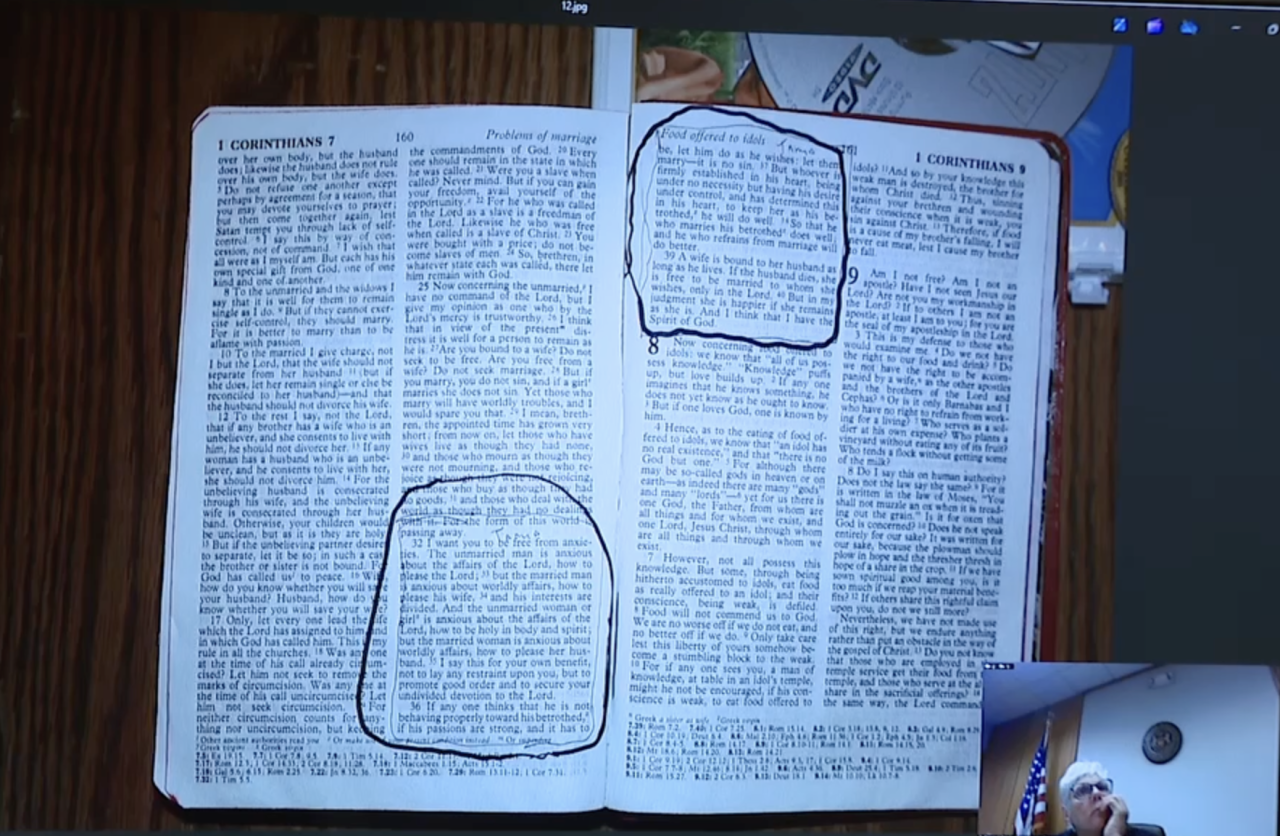 12.jpg
1 CORINTHIANS 7
160
Problems of marriage
over her own body, but the husband
does; likewise the husband does not rule
over his own body, but the wife does.
5 Do not refuse one another except
perhaps by agreement for a season, that
you may devote yourselves to prayer;
but then come together again, lest
Satan tempt you through lack of self-
control. 6 I say this by way of con-
cession, not of command. 7 I wish that
all were as I myself am. But each has his
own special gift from God, one of one
kind and one of another.
8 To the unmarried and the widows I
say that it is well for them to remain
single as I do. 9 But if they cannot exer-
cise self-control, they should marry.
For it is better to marry than to be
aflame with passion.
10 To the married I give charge, not
I but the Lord, that the wife should not
separate from her husband 11 (but if
she does, let her remain single or else be
reconciled to her husband)—and that
the husband should not divorce his wife.
12 To the rest I say, not the Lord,
that if any brother has a wife who is an
unbeliever, and she consents to live with
him, he should not divorce her. 13 If any
woman has a husband who is an unbe-
liever, and he consents to live with her,
she should not divorce him. 14 For the
unbelieving husband is consecrated
through his wife, and the unbelieving
wife is consecrated through her hus
band. Otherwise, your children would
be unclean, but as it is they are holy
15 But if the unbelieving partner desires
to separate, let it be so; in such a ca
the brother or sister is not bound. F
God has called us to peace. 16 Wi
how do you know whether you will sa
your husband? Husband, how do yo
know whether you will save your w
17 Only, let every one lead the life
which the Lord has assigned to him and
in which God has called him. This is my
rule in all the churches. 18 Was any one
at the time of his call already circum-
cised? Let him not seek to remove the
marks of circumcision. Was any one at
the time of his call uncircumcised? Let
him not seek circumcision. 19 For
neither circumcision counts for any-
thing nor uncircumcision, but keeping
the commandments of God. 20 Every
one should remain in the state in which
he was called. 21 Were you a slave when
called? Never mind. But if you can gain
your freedom, avail yourself of the
opportunity. 22 For he who was called
in the Lord as a slave is a freedman of
the Lord. Likewise he who was free
when called is a slave of Christ. 23 You
were bought with a price; do not be-
come slaves of men. 24 So, brethren, in
whatever state each was called, there let
him remain with God.
25 Now concerning the unmarried, I
have no command of the Lord, but I
give my opinion as one who by the
Lord's mercy is trustworthy. 26 I think
that in view of the present dis-
tress it is well for a person to remain as
he is. 27 Are you bound to a wife? Do not
seek to be free. Are you free from a
wife? Do not seek marriage. 28 But if
you marry, you do not sin, and if a girl
marries she does not sin. Yet those who
marry will have worldly troubles, and I
would spare you that. 29 I mean, breth-
ren, the appointed time has grown very
short; from now on, let those who have
wives live as though they had none,
30 and those who mourn as though they
were not mourning, and those who re-
joice as though they were not rejoicing,
and those who buy as though they had
no goods, 31 and those who deal with the
world as though they had no dealings
with it. For the form of this world is
passing away.
32 I want you to be free from anxie-
ties. The unmarried man is anxious
about the affairs of the Lord, how to
please the Lord; 33 but the married man
is anxious about worldly affairs, how to
please his wife, 34 and his interests are
divided. And the unmarried woman or
girl is anxious about the affairs of the
Lord, how to be holy in body and spirit;
but the married woman is anxious about
worldly affairs, how to please her hus-
band. 35 I say this for your own benefit,
not to lay any restraint upon you, but to
promote good order and to secure your
undivided devotion to the Lord.
36 If any one thinks that he is not
behaving properly toward his betrothed,
if his passions are strong, and it has to
Food offered to idols
161
1 CORINTHIANS 9
be, let him do as he wishes: let them
marry—it is no sin. 37 But whoever is
firmly established in his heart, being
under no necessity but having his desire
under control, and has determined this
in his heart, to keep her as his be-
trothed, he will do well. 38 So that he
who marries his betrothed does well;
and he who refrains from marriage will
do better.
39 A wife is bound to her husband as
long as he lives. If the husband dies, she
is free to be married to whom she
wishes, only in the Lord. 40 But in my
judgment she is happier if she remains
as she is. And I think that I have the
Spirit of God.
8 Now concerning food offered to
idols: we know that "all of us pos-
sess knowledge." "Knowledge" puffs
up, but love builds up. 2 If any one
imagines that he knows something, he
does not yet know as he ought to know.
3 But if one loves God, one is known by
him.
4 Hence, as to the eating of food of-
fered to idols, we know that "an idol has
no real existence," and that "there is no
God but one." 5 For although there
may be so-called gods in heaven or on
earth—as indeed there are many "gods"
and many "lords"—6 yet for us there is
one God, the Father, from whom are
all things and for whom we exist, and
one Lord, Jesus Christ, through whom
are all things and through whom we
exist.
7 However, not all possess this
knowledge. But some, through being
hitherto accustomed to idols, eat food
as really offered to an idol; and their
conscience, being weak, is defiled.
8 Food will not commend us to God.
We are no worse off if we do not eat, and
no better off if we do. 9 Only take care
lest this liberty of yours somehow be-
come a stumbling block to the weak.
10 For if any one sees you, a man of
knowledge, at table in an idol's temple,
might he not be encouraged, if his con-
science is weak, to eat food offered to
idols? 11 And so by your knowledge this
weak man is destroyed, the brother for
whom Christ died. 12 Thus, sinning
against your brethren and wounding
their conscience when it is weak, you
sin against Christ. 13 Therefore, if food
is a cause of my brother's falling, I will
never eat meat, lest I cause my brother
to fall.
9 Am I not free? Am I not an
apostle? Have I not seen Jesus our
Lord? Are not you my workmanship in
the Lord? 2 If to others I am not an
apostle, at least I am to you; for you are
the seal of my apostleship in the Lord.
3 This is my defense to those who
would examine me. 4 Do we not have
the right to our food and drink? 5 Do
we not have the right to be accom-
panied by a wife, as the other apostles
and the brothers of the Lord and
Cephas? 6 Or is it only Barnabas and I
who have no right to refrain from work-
ing for a living? 7 Who serves as a sol-
dier at his own expense? Who plants a
vineyard without eating any of its fruit?
Who tends a flock without getting some
of the milk?
8 Do I say this on human authority?
Does not the law say the same? 9 For it
is written in the law of Moses, "You
shall not muzzle an ox when it is tread-
ing out the grain." Is it for oxen that
God is concerned? 10 Does he not speak
entirely for our sake? It was written for
our sake, because the plowman should
plow in hope and the thresher thresh in
hope of a share in the crop. 11 If we have
sown spiritual good among you, is it
too much if we reap your material bene-
fits? 12 If others share this rightful claim
upon you, do not we still more?
Nevertheless, we have not made use
of this right, but we endure anything
rather than put an obstacle in the way of
the gospel of Christ. 13 Do you not know
that those who are employed in
temple service get their food from
temple, and those who serve at the al
share in the sacrificial offerings? 14
the same way, the Lord command
DVD
VIDEO